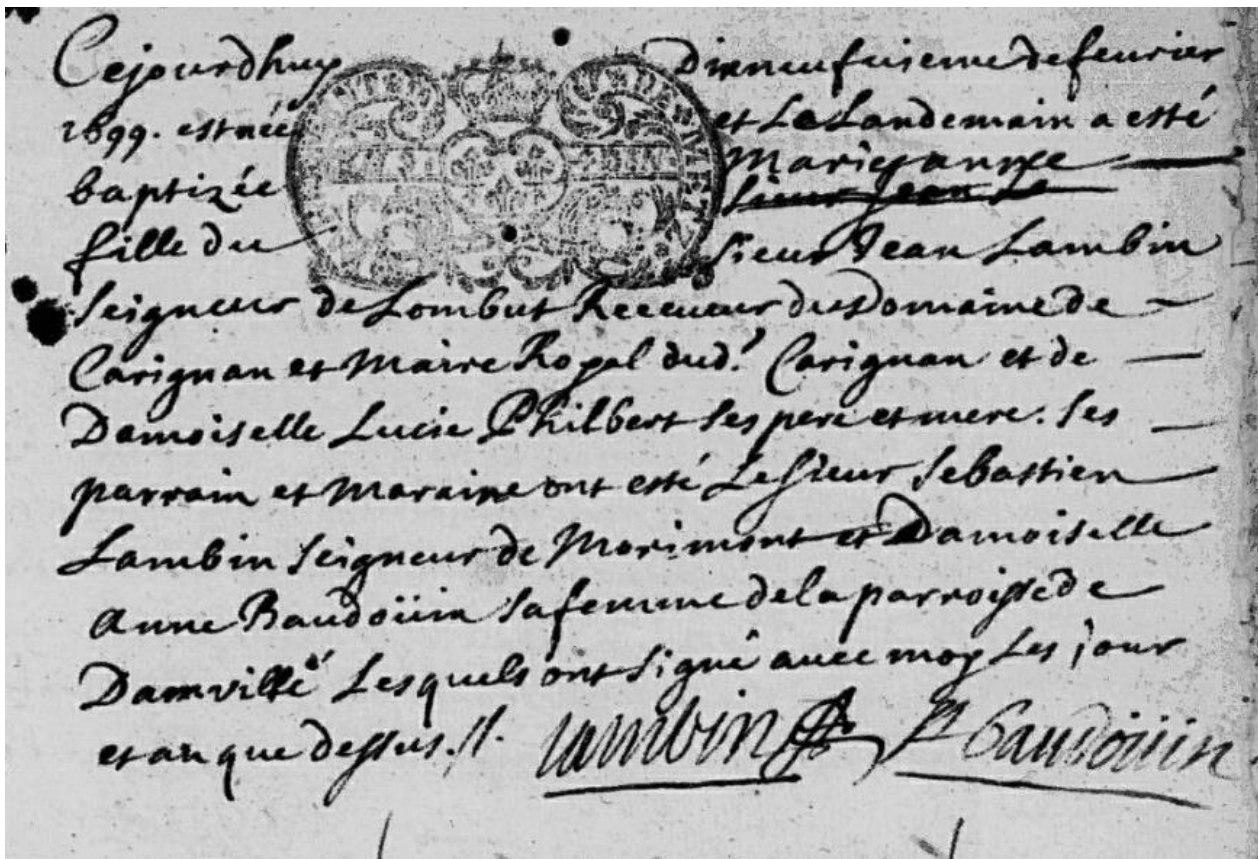 Cejourdhuy Dixneufuieme de feurier
1699. est née et Le Landemain a esté
baptizée Marie anne
Sieur Jean Le
fille du Sieur Jean Lambin
Seigneur de Lombut Receueur du Domaine de
Carignan et Maire Royal dud.t Carignan et de
Damoiselle Lucie Philbert ses pere et mere. ses
parrain et Maraine ont esté Le Sieur Sebastien
Lambin Seigneur de Morimont et Damoiselle
Anne Baudoüin sa femme de la parroisse de
Damvillé Lesquels ont signé auec moy Les jour
et an que dessus.
Lambin Baudoüin